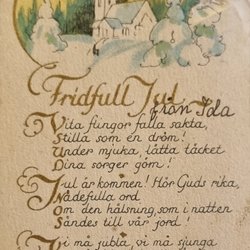 Fridfull Jul!
från Ida
Vita flingor falla sakta,
Stilla som en dröm!
Under mjuka, lätta täcket
Dina sorger göm!
Jul är kommen! Hör Guds rika,
Nådefulla ord
Om den hälsning, som i natten
Sändes till vår jord!
Vi må jubla, vi må sjunga